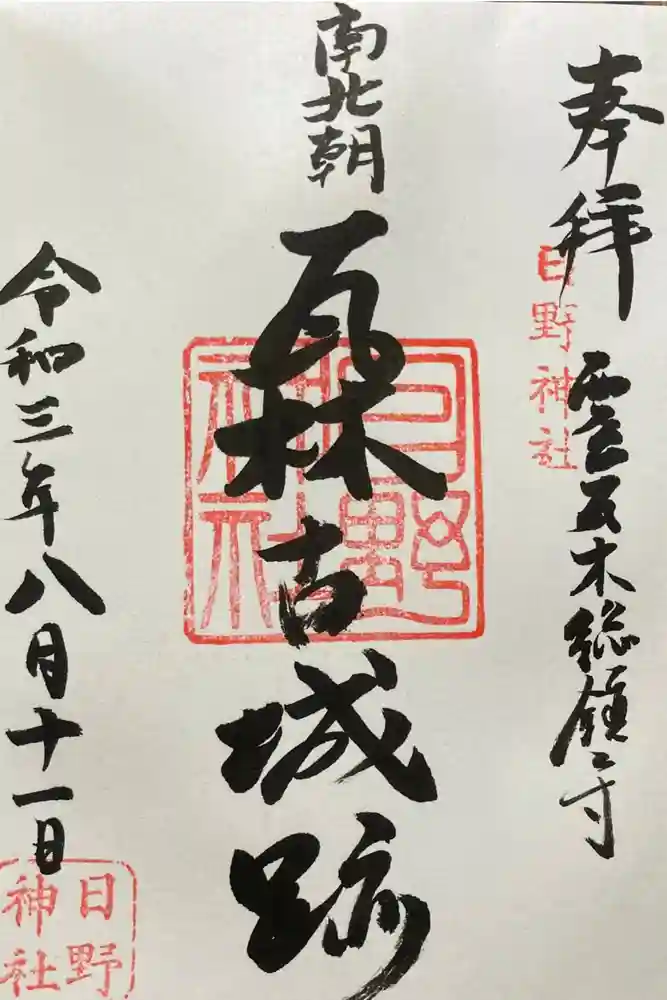 奉拝
日野神社
瓦木総鎮守
南北朝
瓦林古城跡
日野神社
令和三年八月十一日
日野
神社